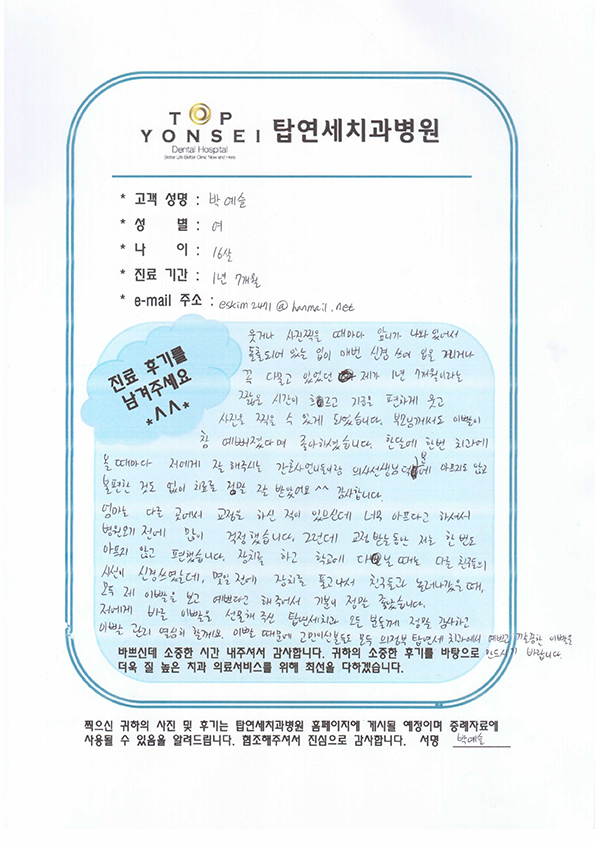 TOP
YONSEI 탑연세치과병원
Dental Hospital
Better Life Better Clinic Now and Here
* 고객 성명 : 박예슬
* 성 별 : 여
* 나 이 : 16살
* 진료 기간 : 1년 7개월
* e-mail 주소 : eskim2471@hanmail.net
진료 후기를
남겨주세요
*^^*
웃거나 사진찍을 때마다 앞니가 나와 있어서
돌출되어 있는 입이 매번 신경 쓰여 입을 가리거나
꼭 다물고 있었던 제가 1년 7개월이라는
짧은 시간이 흐르고 지금은 편하게 웃고
사진을 찍을 수 있게 되었습니다. 부모님께서도 이빨이
참 예뻐졌다며 좋아하셨습니다. 한달에 한번 치과에
올 때마다 저에게 잘 해주시는 간호사언니들이랑 의사선생님 덕분에 아프지도 않고
불편한 것도 없이 치료를 정말 잘 받았어요 ^^ 감사합니다.
엄마는 다른 곳에서 교정을 하신 적이 있으신데 너무 아프다고 하셔서
병원오기 전에 많이 걱정했습니다. 그런데 교정 받는동안 저는 한번도
아프지 않고 편했습니다. 장치를 하고 학교에 다닐 때는 다른 친구들의
시선이 신경쓰였는데, 몇일 전에 장치를 풀고나서 친구들과 놀러나갔을 때,
모두 제 이빨을 보고 예쁘다고 해주어서 기분이 정말 좋았습니다.
저에게 바른 이빨을 선물해 주신 탑연세치과 모든 분들께 정말 감사하고
이빨 관리 열심히 할게요. 이빨 때문에 고민이신분들도 모두 의정부 탑연세 치과에서 예쁘고 깔끔한 이빨을
만드시기 바랍니다.
바쁘신데 소중한 시간 내주셔서 감사합니다. 귀하의 소중한 후기를 바탕으로
더욱 질 높은 치과 의료서비스를 위해 최선을 다하겠습니다.
찍으신 귀하의 사진 및 후기는 탑연세치과병원 홈페이지에 게시될 예정이며 증례자료에
사용될 수 있음을 알려드립니다. 협조해주셔서 진심으로 감사합니다. 서명 박예슬